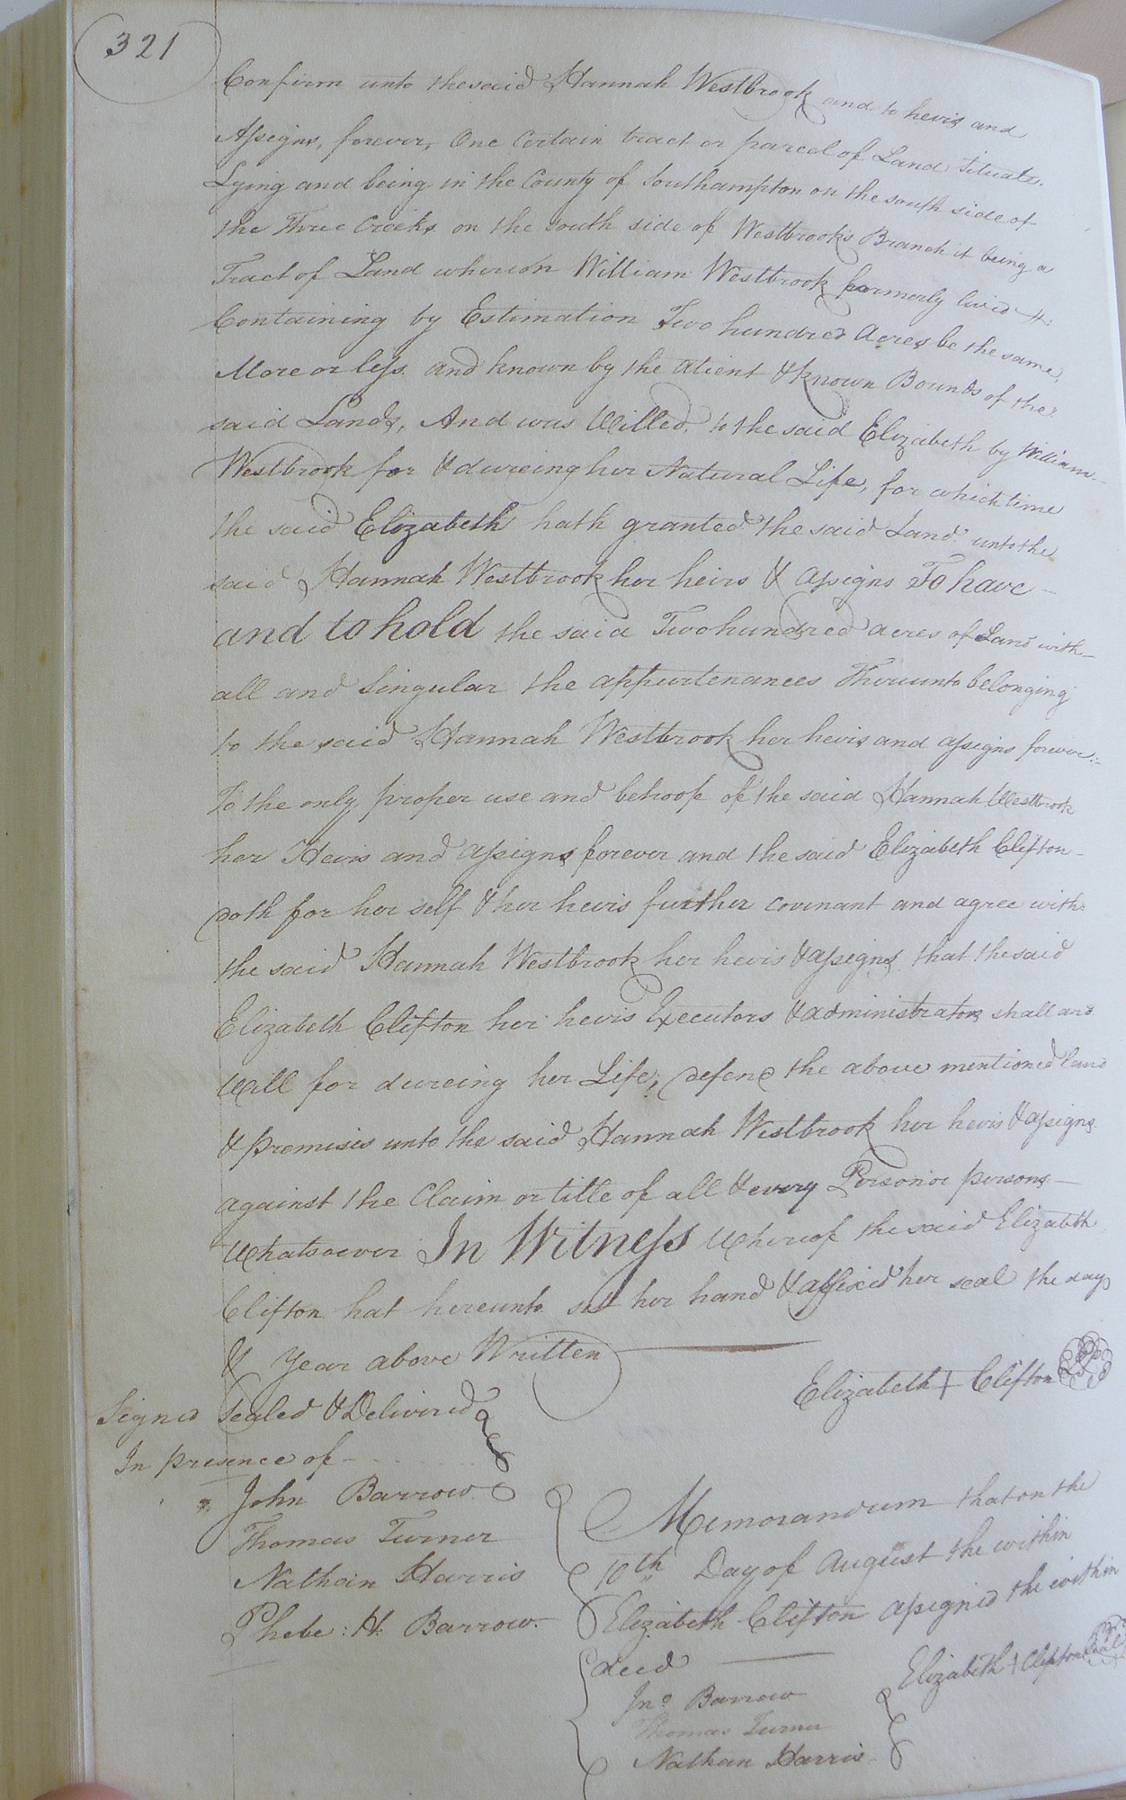 321
Confirm unto the said Hannah Westbrook and to heirs and
Assigns, forever, One Certain tract or parcel of Land Situate.
Lying and being in the County of Southampton on the south side of
the Three Creeks on the south side of Westbrooks Branch it being a
Tract of Land whereon William Westbrook formerly lived
Containing by Estimation Two hundred Acres be the same,
More or less. and known by the atient & known Bounds of the
said Lands, And was Willed, to the said Elizabeth by William
Westbrook for & dureing her Natural Life, for which time
the said Elizabeth hath granted the said Land unto the
said Hannah Westbrook her heirs & assigns To have
and to hold the said Two hundred acres of Land with
all and Singular the appurtenances Thereunto belonging
to the said Hannah Westbrook her heirs and assigns forever
To the only proper use and behoofe of the said Hannah Westbrook
her Heirs and assigns forever and the said Elizabeth Clifton
doth for her self & her heirs further covenant and agree with
the said Hannah Westbrook her heirs & assigns that the said
Elizabeth Clifton her heirs Executors & administrators shall and
Will for dureing her Life, defend the above mentioned land
& promises unto the said Hannah Westbrook her heirs & assigns
against the Claim or title of all & every Person or persons
Whatsoever In Witness Whereof the said Elizabeth
Clifton hat hereunto set her hand & affixed her seal the day
& Year above Written
Elizabeth + Clifton
Signed Sealed & Delivered
In presence of
John Barrow
Thomas Turner
Nathan Harris
Phebe: H: Barrow.
Memorandum that on the
10th Day of August the within
Elizabeth Clifton assigned the within
deed
Elizabeth + Clifton Seal
Jno Barrow
Thomas Turner
Nathan Harris